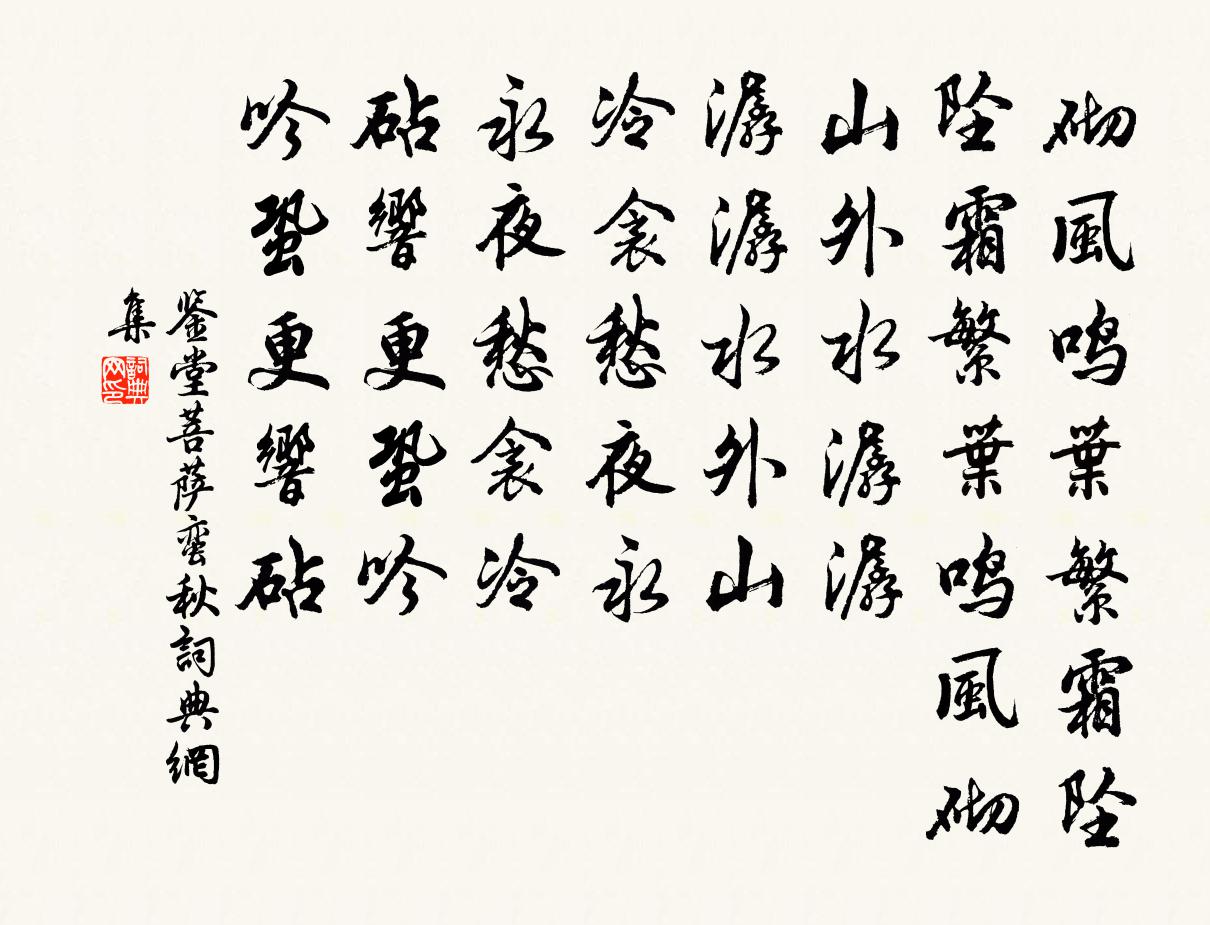 砌風鸣葉繁霜坠
坠霜繁葉鸣風砌
山外水潺潺
潺潺水外山
冷衾愁夜永
永夜愁衾冷
砧響更蛩吟
吟蛩更響砧
鉴堂菩萨蛮秋詞典網
集
詞典网印